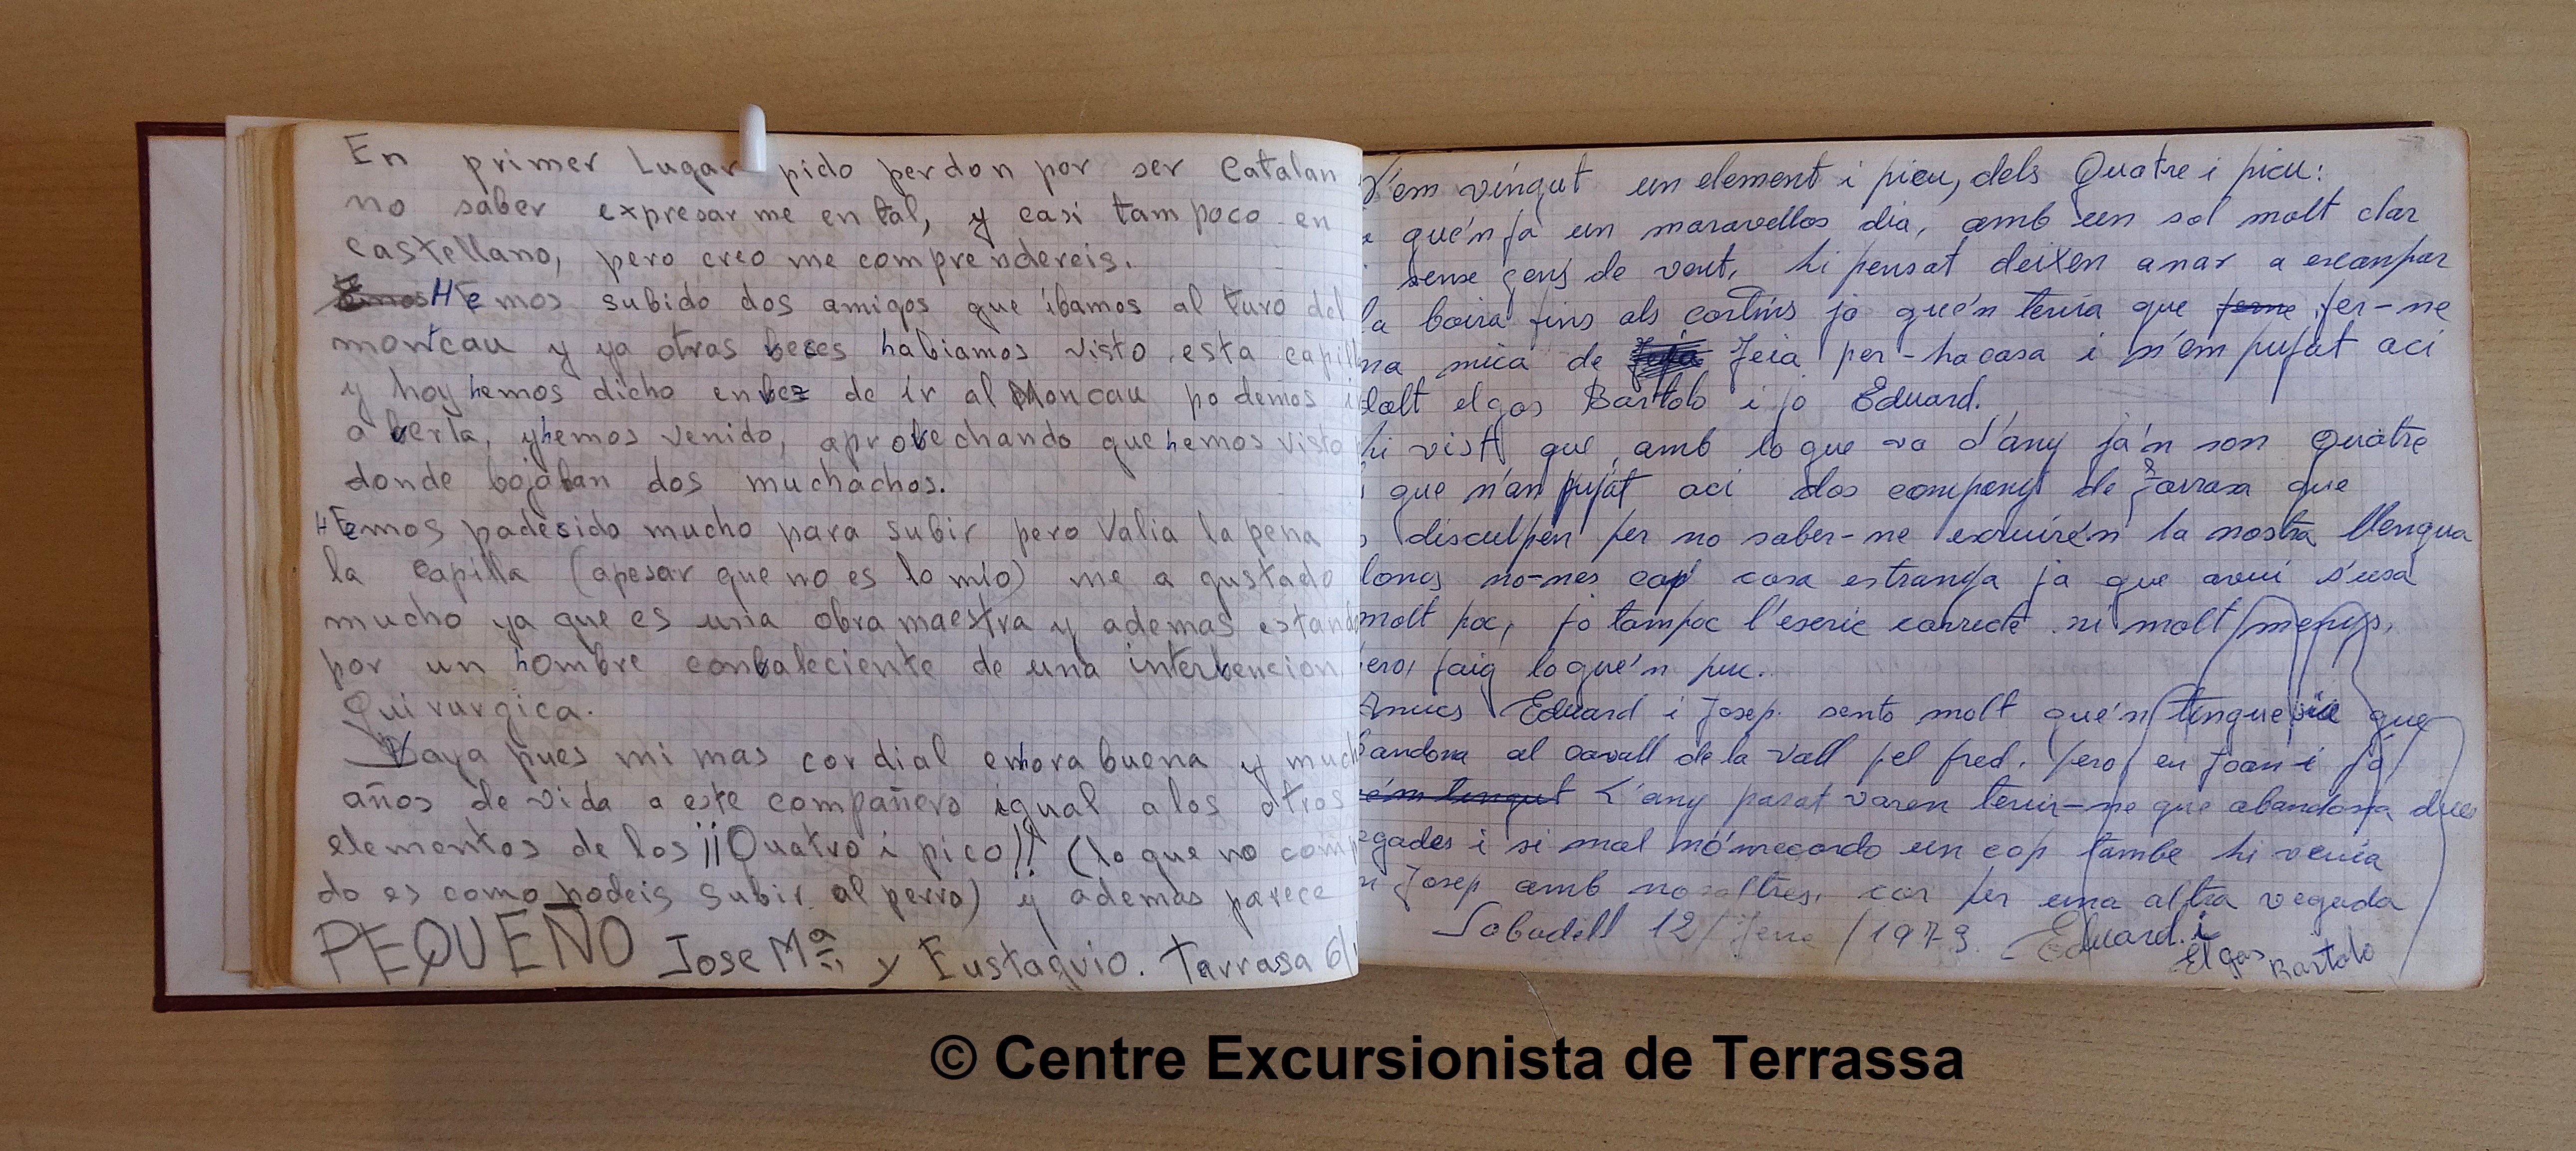 En primer Lugar pido perdon por ser Catalan
no saber expresarme en tal, y casi tampoco en
castellano, pero creo me comprendereis.
Hemos subido dos amigos que ibamos al turo del
montcau y ya otras veces habiamos visto esta capill
y hoy hemos dicho envez de ir al Moncau podemos i
a verla, y hemos venido, aprovechando que hemos visto
donde bajaban dos muchachos.
HEmos padecido mucho para subir pero Valia la pena
la capilla (apesar que no es lo mio) me a gustado
mucho ya que es una obra maestra y ademas estand
por un hombre convaleciente de una intervencion
Quirurgica.
Vaya pues mi mas cordial enhorabuena y much
años de vida a este compañero igual a los otros
elementos de los ¡¡Quatro i pico!! (lo que no comp
do es como podeis subir al perro) y ademas parece
PEQUEÑO Jose Mª y Eustaquio. Tarrasa 6/
N'em vingut un element i picu, dels Quatre i picu:
que'n fa un maravellos dia, amb un sol molt clar
sense gens de vent, hi pensat deixen anar a escanpar
la boira fins als cortins ja que'n tenia que fer-ne
na mica de feia per-ha casa i n'em pujat aci
dalt el gos Bartolo i jo Eduard.
hi vist que amb lo que va d'any ja'n son Quatre
que n'an pujat aci dos companys de Tarrasa que
disculpen per no saber-ne escriure'n la nostra llengua
doncs no-nes cap cosa estranya ja que avui s'usa
molt poc, jo tampoc l'escric correcte ni molt menys,
pero, faig lo que'n puc.
Amics Eduard i Josep. sento molt que'n tingue que
bandona al cavall de la Vall pel fred, pero en Joan i jo
L'any pasat varen tenir-ne que abandona dues
egades i si mal no'mrecordo un cop tambe hi venia
n Josep amb nosaltres, per una altra vegada
Sabadell 12/Jene/1979 Eduard. i
El gos Bartolo
© Centre Excursionista de Terrassa